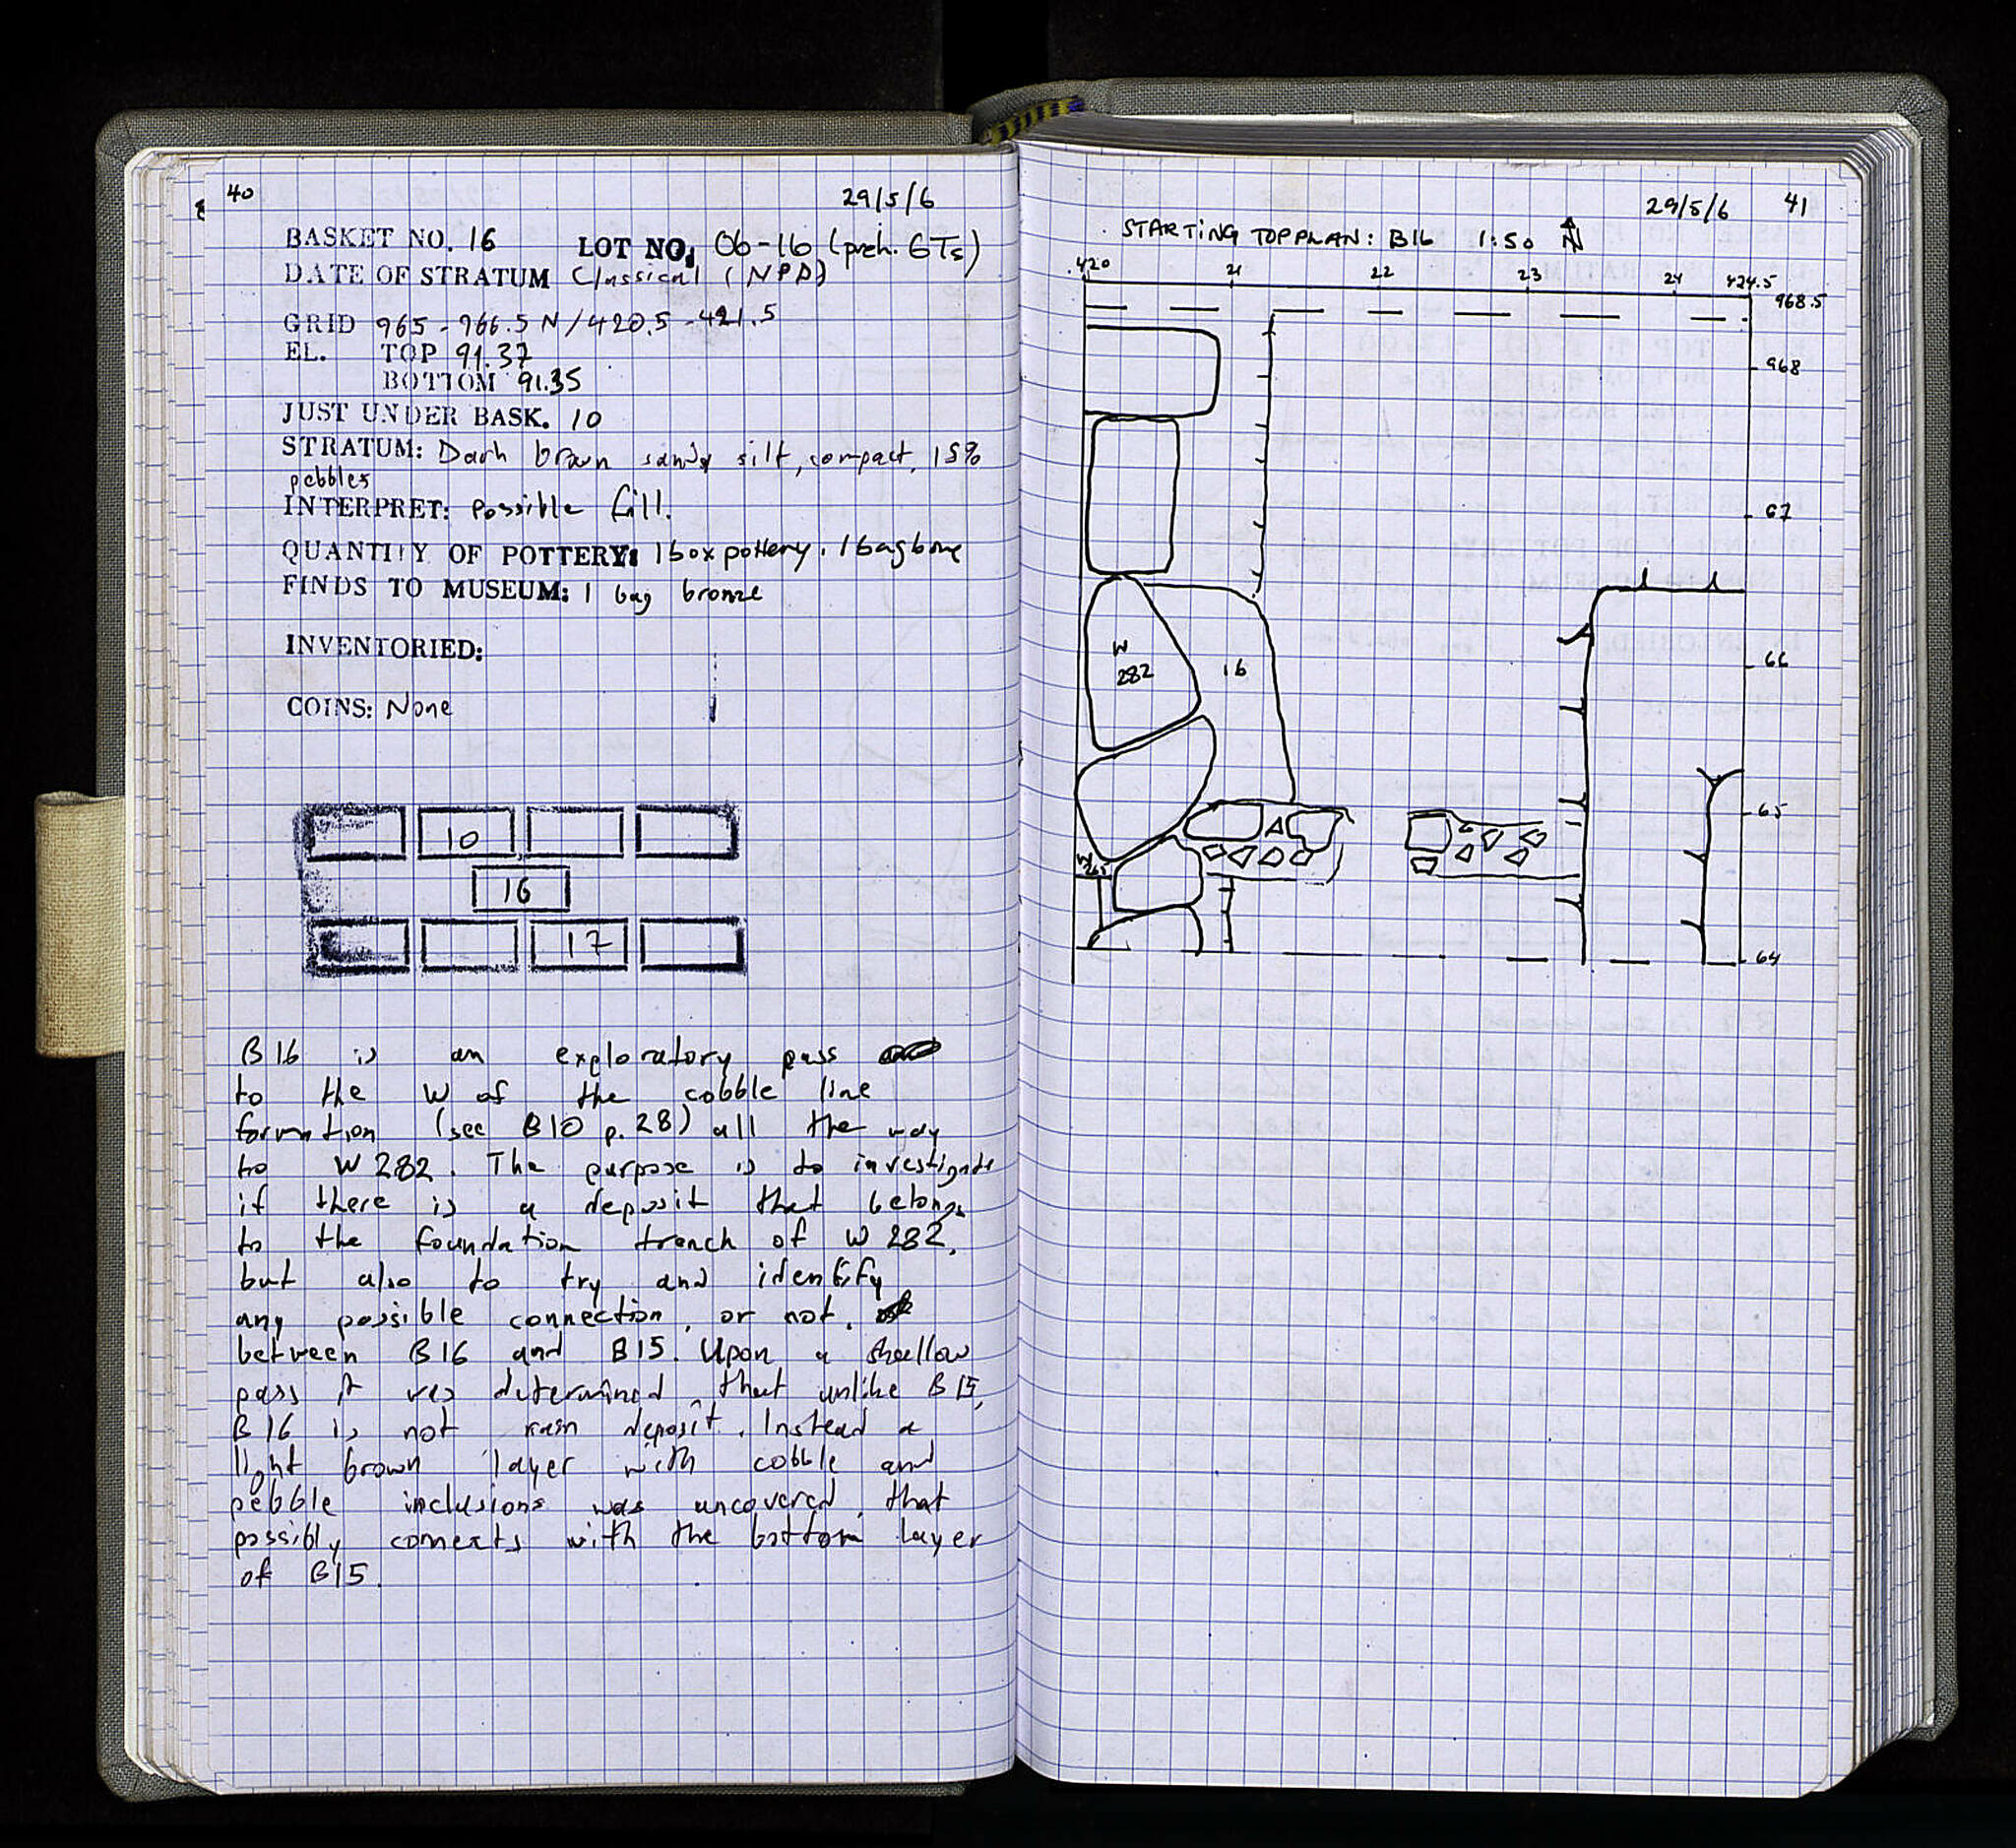 40
29/5/6
BASKET NO. 16 LOT NO. 06-16 (preh. GTs)
DATE OF STRATUM Classical (NPD)
GRID 965-966.5 N/420.5-421.5
EL. TOP 91.37
BOTTOM 91.35
JUST UNDER BASK. 10
STRATUM: Dark brown sandy silt, compact, 15%
pebbles
INTERPRET: Possible fill.
QUANTITY OF POTTERY: 1 box pottery. 1 bag bone
FINDS TO MUSEUM: 1 bag bronze
INVENTORIED:
COINS: None
10
16
17
B16 is an exploratory pass
to the W of the cobble line
formation (see B10 p.28) all the way
to W282. The purpose is to investigate
if there is a deposit that belongs
to the foundation trench of W282,
but also to try and identify
any possible connection, or not,
between B16 and B15. Upon a shallow
pass it was determined, that unlike B15,
B16 is not deposit. Instead a
light brown layer with cobble and
pebble inclusions was uncovered that
possibly connects with the bottom layer
of B15.
29/5/6 41
STARTING TOP PLAN: B16 1:50 N
420 21 22 23 24 424.5
968.5
968
67
W
282
16
66
65
64